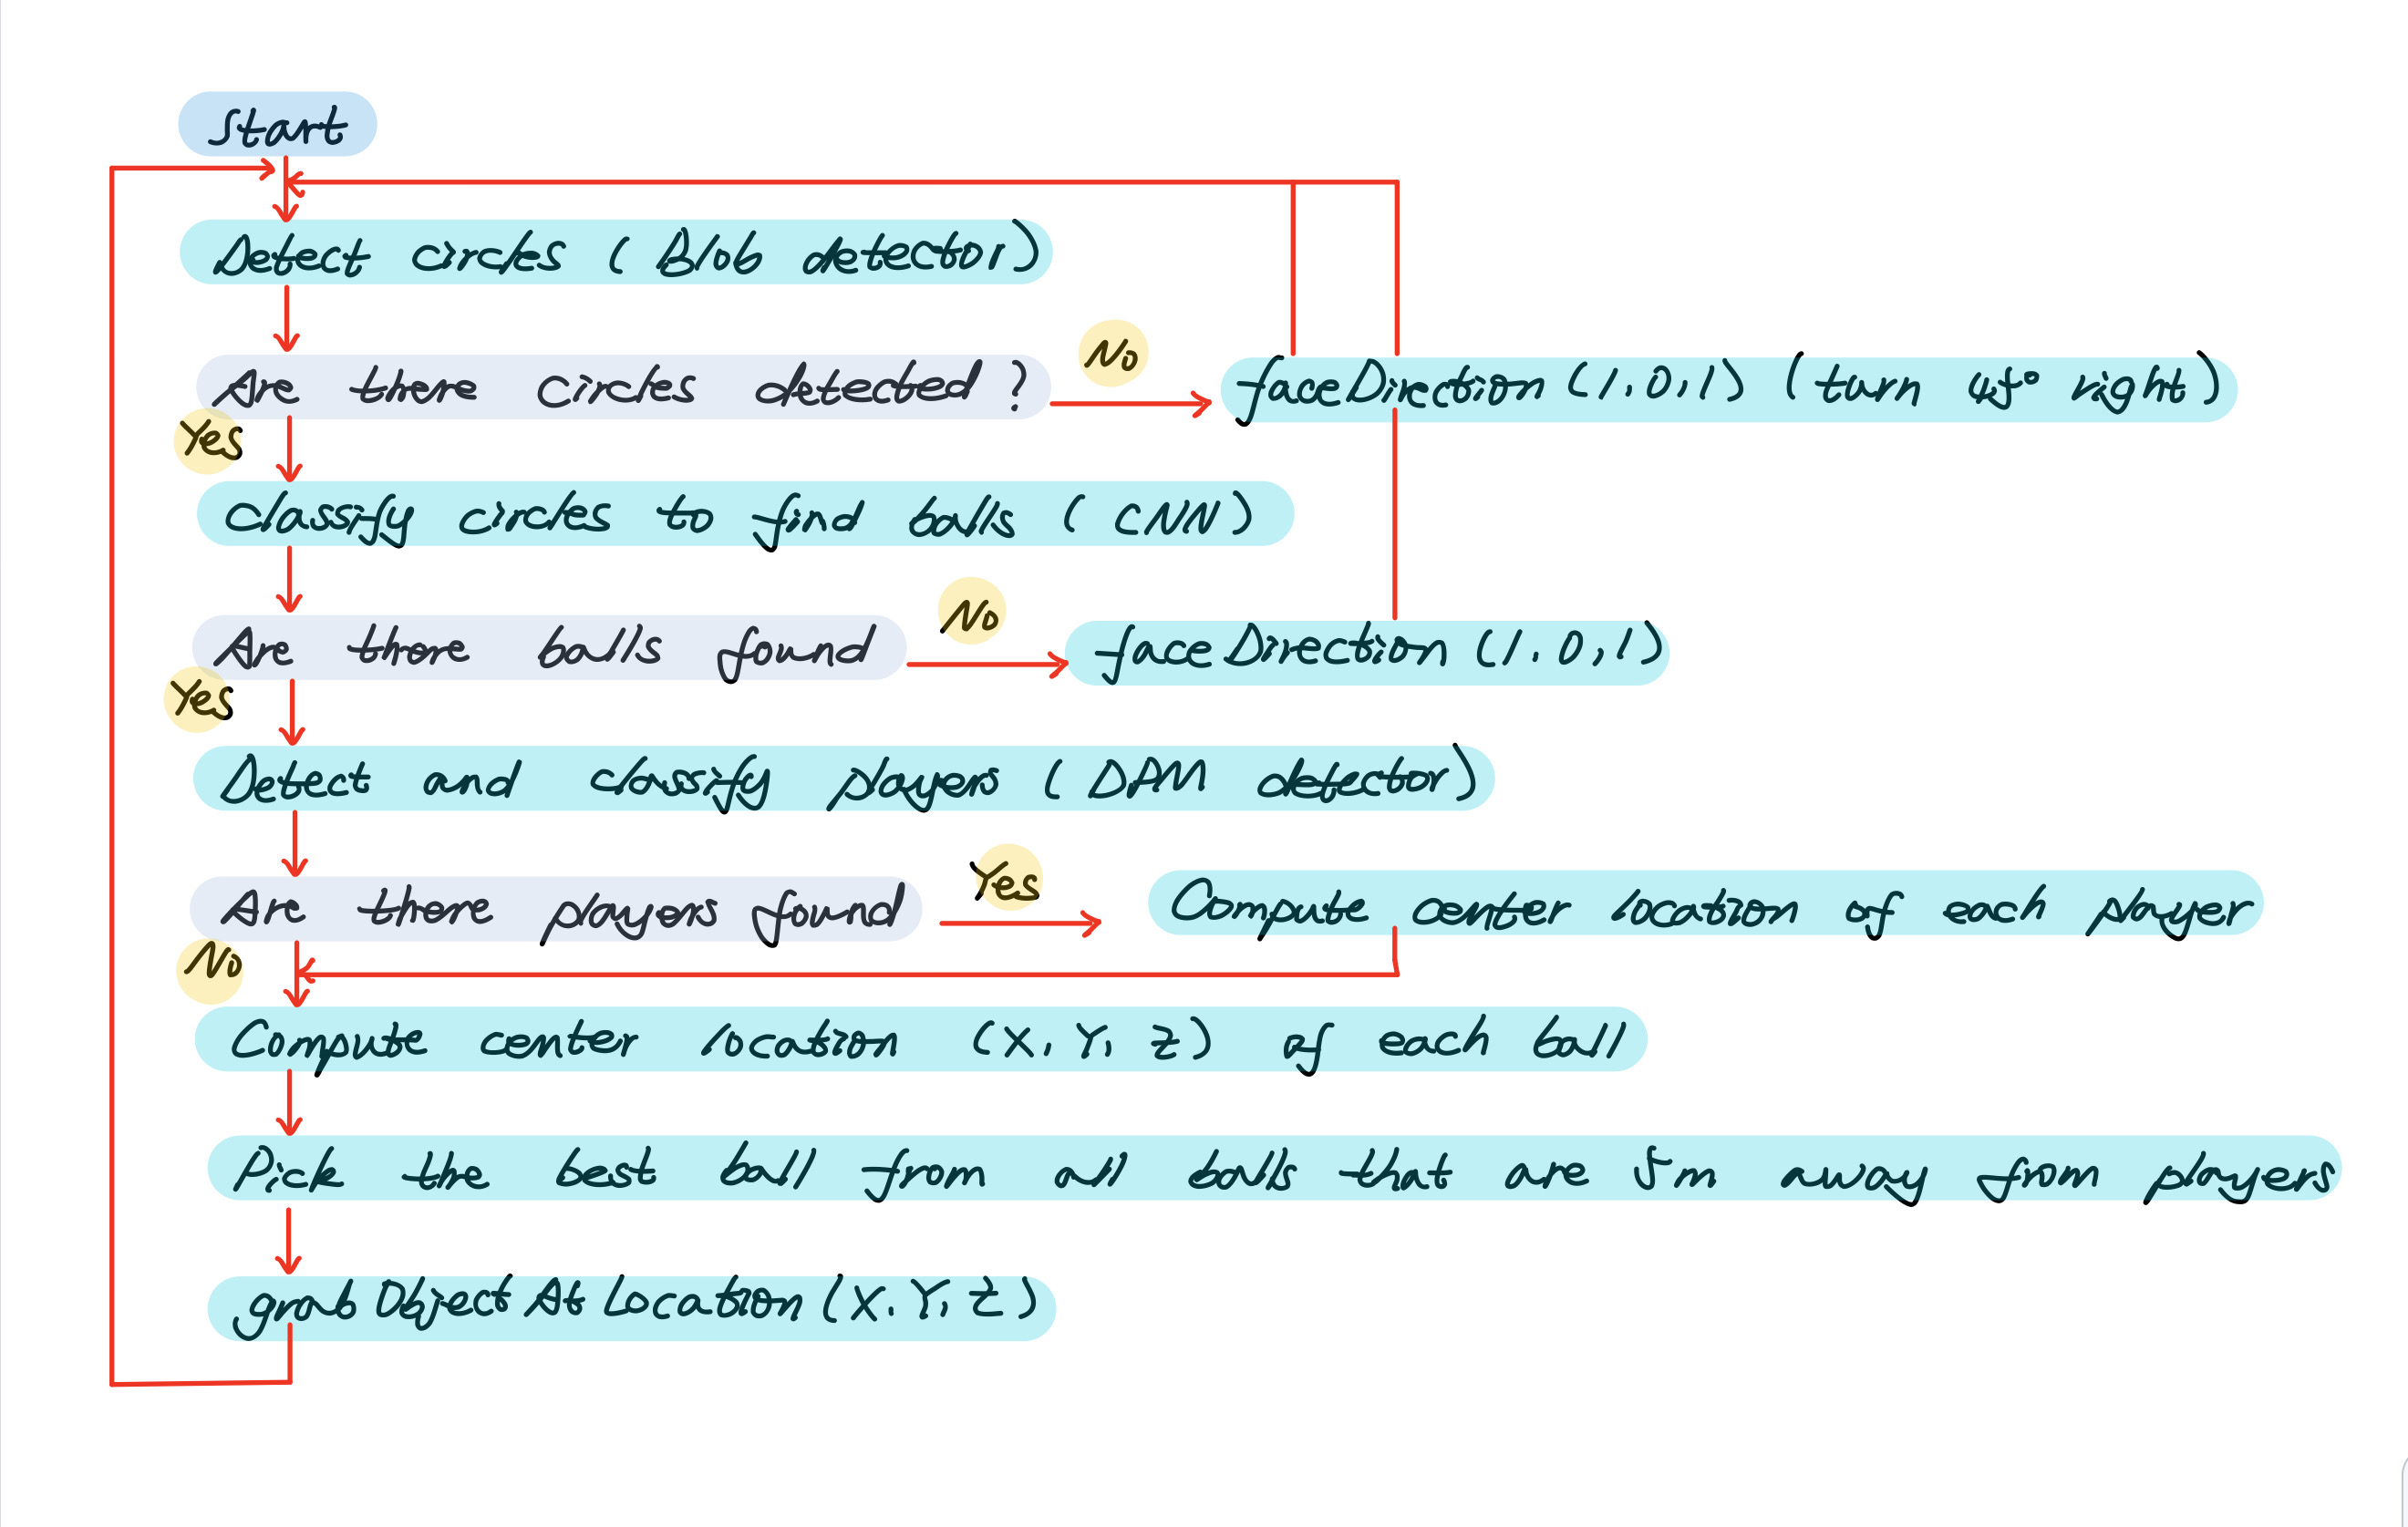 Start
Detect circles (Blob detector)
Are there circles detected?
No
faceDirection (1,0,1) (turn 45° right)
Yes
classify circles to find balls (CNN)
Are there balls found
No
faceDirection (1,0,1)
Yes
Detect and classify players (DPM detector)
Are there players found
Yes
Compute center location of each player
No
Compute center location (X, Y, Z) of each ball
Pick the best ball from all balls that are 5m away from players
grabObjectAtLocation(X,Y,Z)